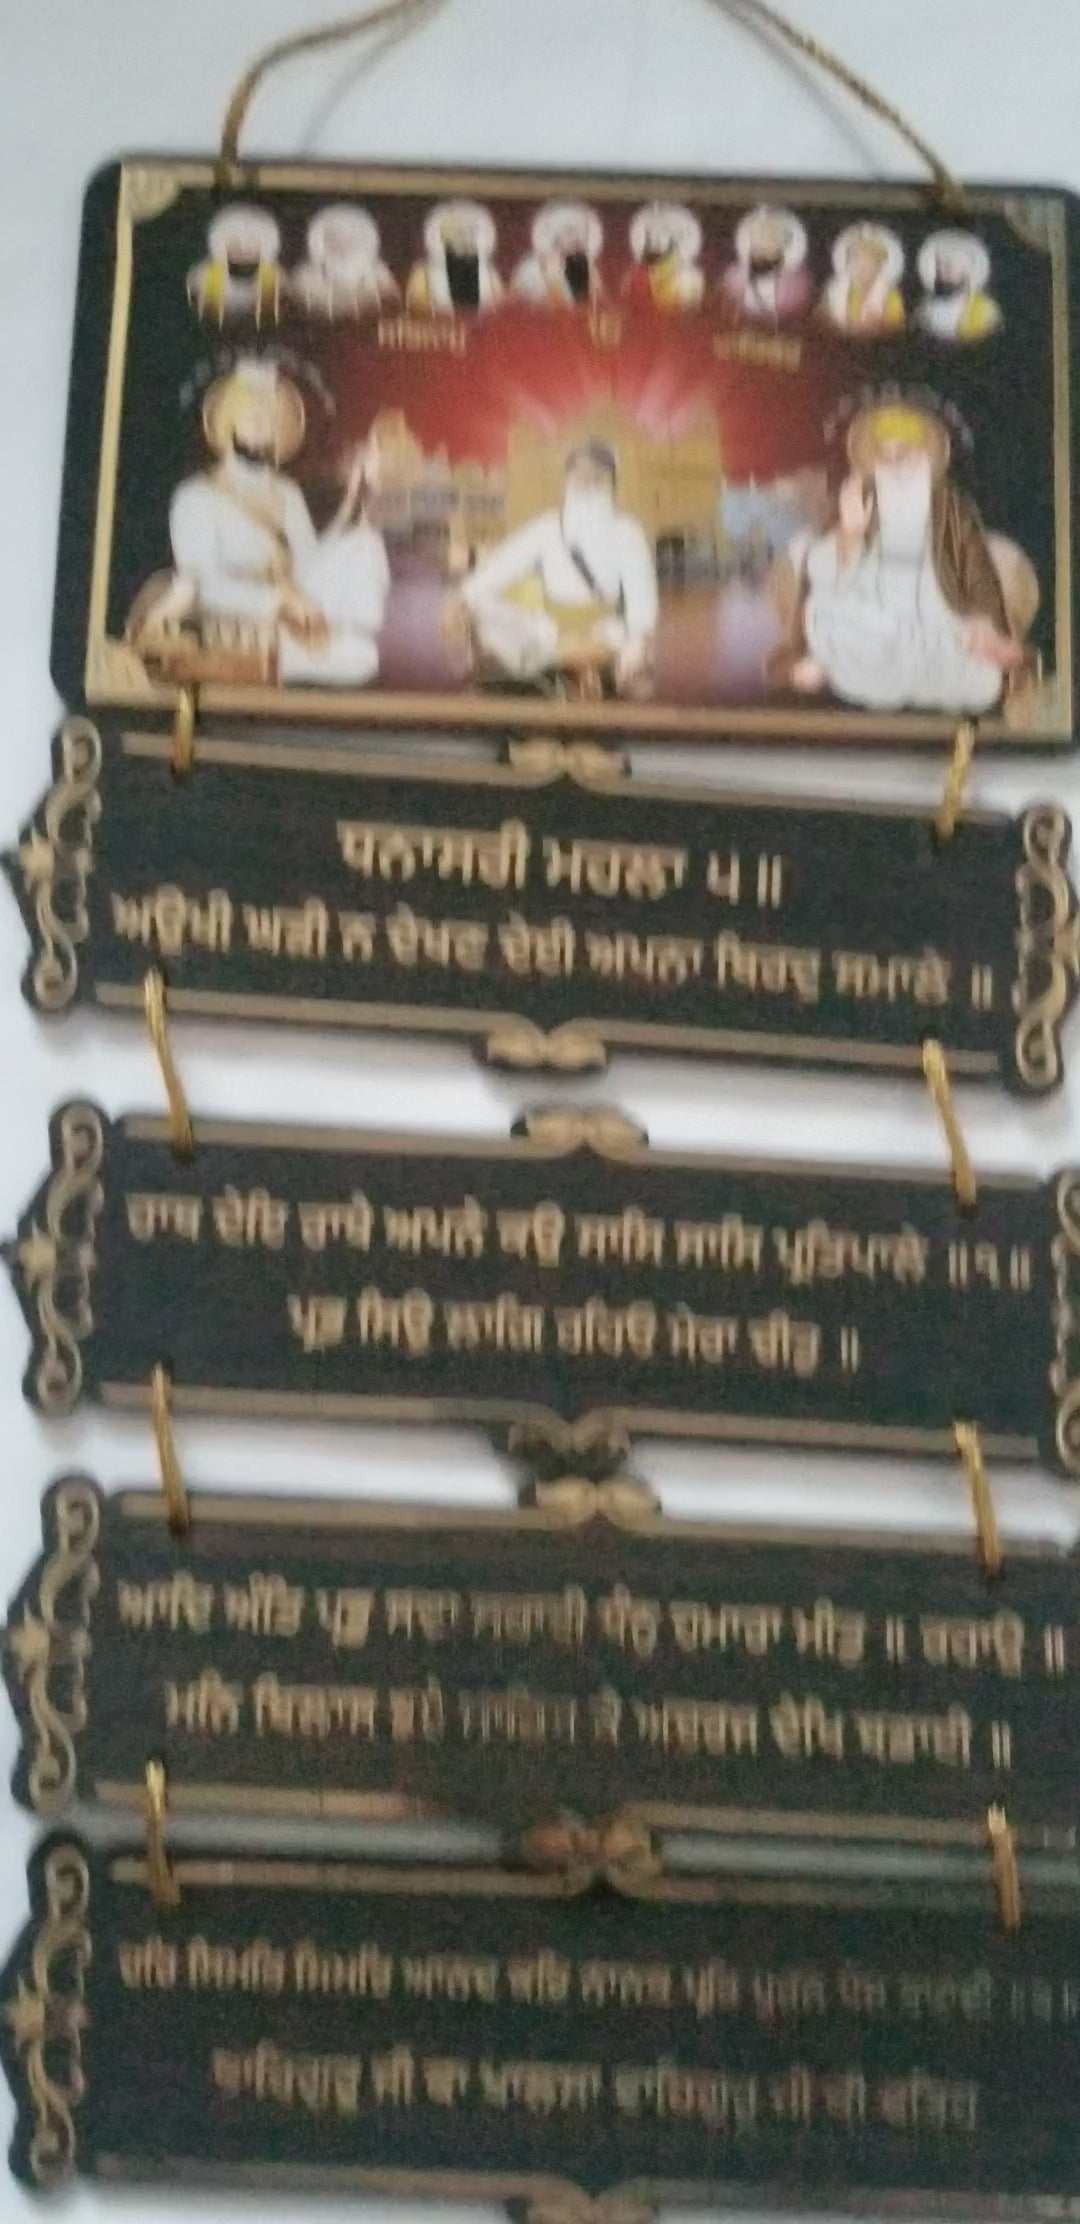 ਧਨਾਸਰੀ ਮਹਲਾ ੫ ॥
ਅਉਖੀ ਘੜੀ ਨ ਦੇਖਣ ਦੇਈ ਅਪਨਾ ਬਿਰਦੁ ਸਮਾਲੇ ॥
ਹਾਥ ਦੇਇ ਰਾਖੇ ਅਪਨੇ ਕਉ ਸਾਸਿ ਸਾਸਿ ਪ੍ਰਤਿਪਾਲੇ ॥੧॥
ਪ੍ਰਭ ਸਿਉ ਲਾਗਿ ਰਹਿਓ ਮੇਰਾ ਚੀਤੁ ॥
ਆਦਿ ਅੰਤਿ ਪ੍ਰਭੁ ਸਦਾ ਸਹਾਈ ਧੰਨੁ ਹਮਾਰਾ ਮੀਤੁ ॥ ਰਹਾਉ ॥
ਮਨਿ ਬਿਲਾਸ ਭਏ ਸਾਹਿਬ ਕੇ ਅਚਰਜ ਦੇਖਿ ਬਡਾਈ ॥
ਹਰਿ ਸਿਮਰਿ ਸਿਮਰਿ ਆਨਦ ਕਰਿ ਨਾਨਕ ਪ੍ਰਭਿ ਪੂਰਨ ਪੈਜ ਰਖਾਈ
ਵਾਹਿਗੁਰੂ ਜੀ ਕਾ ਖਾਲਸਾ ਵਾਹਿਗੁਰੂ ਜੀ ਕੀ ਫਤਿਹ